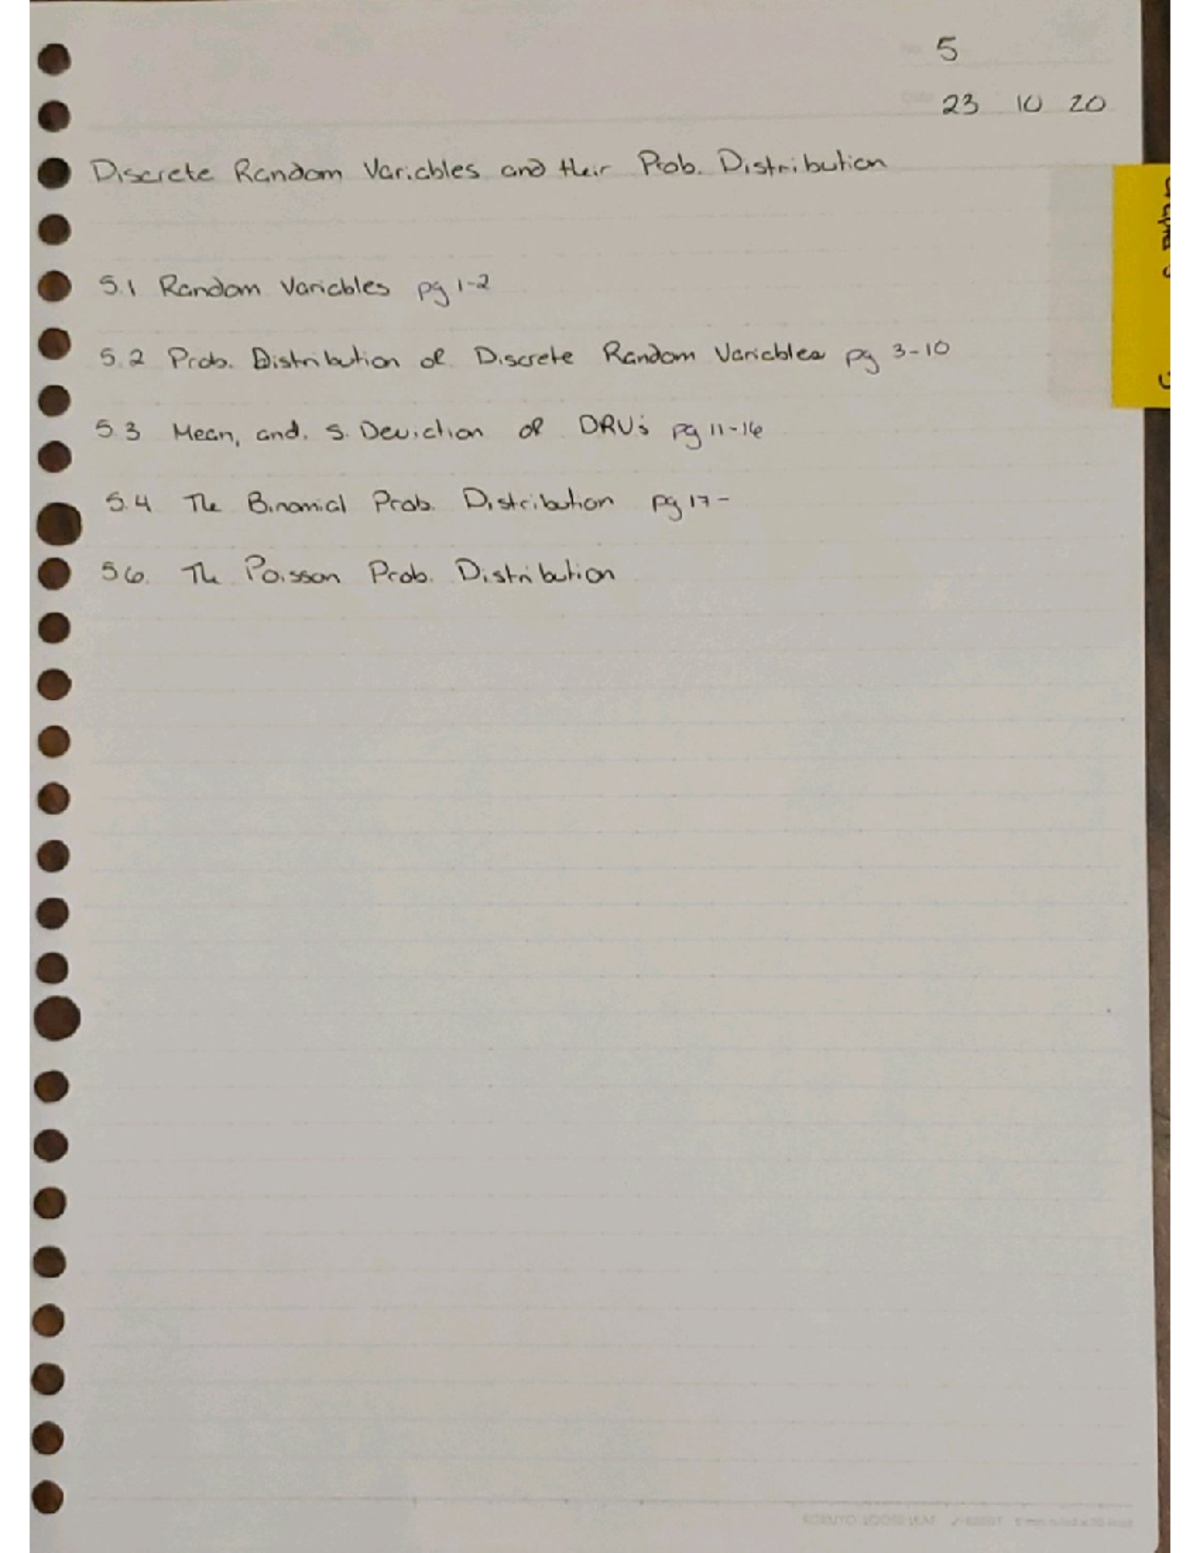 5
23 10 20
Discrete Random Variables and their Prob. Distribution
5.1 Random Variables pg 1-2
5.2 Prob. Distribution of Discrete Random Variables pg 3-10
5.3 Mean, and. S. Deviation of DRV's pg 11-16
5.4 The Binomial Prob. Distribution pg 17-
5.6. The Poisson Prob. Distribution